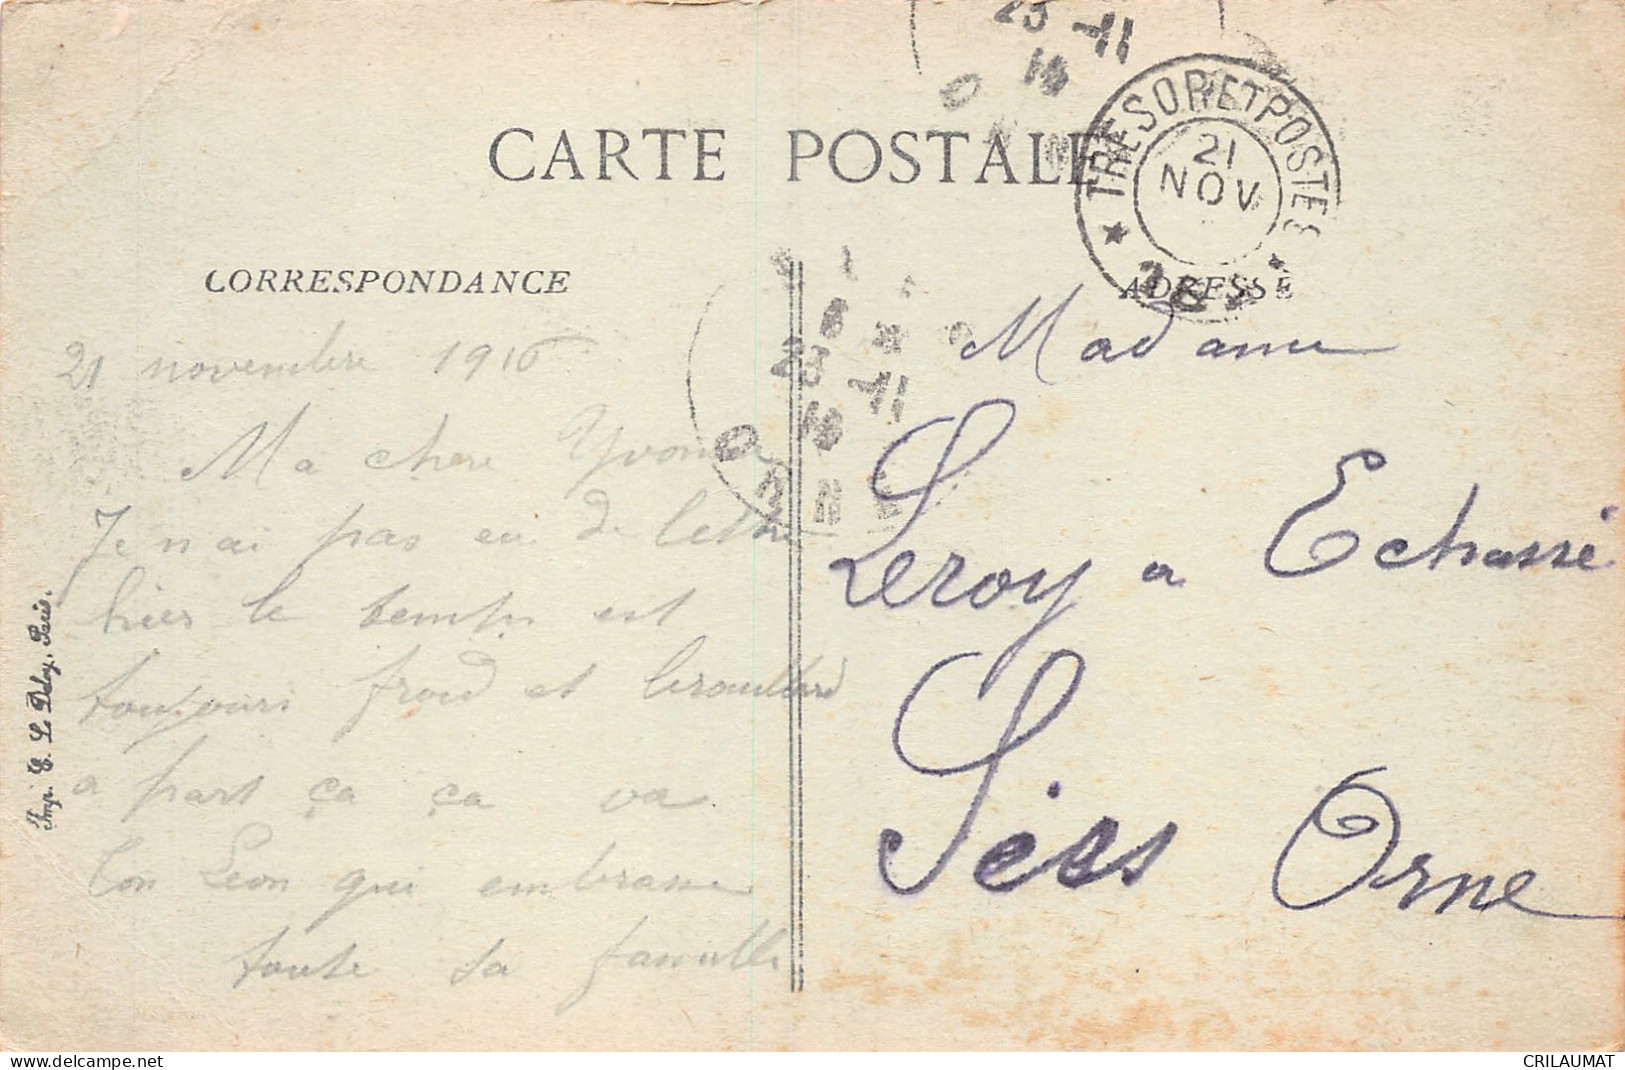 CARTE POSTALE
TRESOR ET POSTES
21
NOV
23 -11
16
CORRESPONDANCE
ADRESSE
21 novembre 1916
Ma chere Yvonne
Je n ai pas eu de lettre
hier le temps est
toujours froid et brouillard
a part ça ça va
Ton Leon qui embrasse
toute sa famille
23 -11
16
ORNE
Madame
Leroy a Echassé
Sées Orne
Imp. E. Le Deley, Paris.
delcampe.net
CRILAUMAT